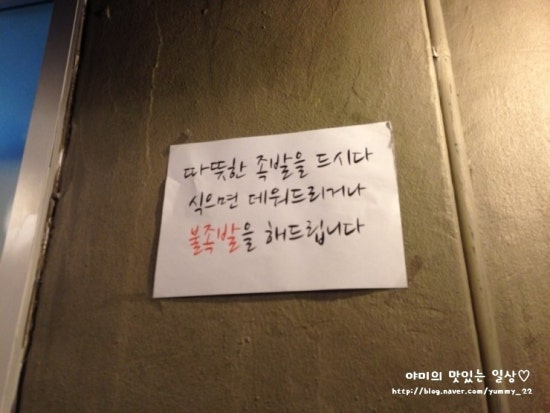 따뜻한 족발을 드시다
식으면 데워드리거나
불족발을 해드립니다
야미의 맛있는 일상♡
http://blog.naver.com/yummy_22